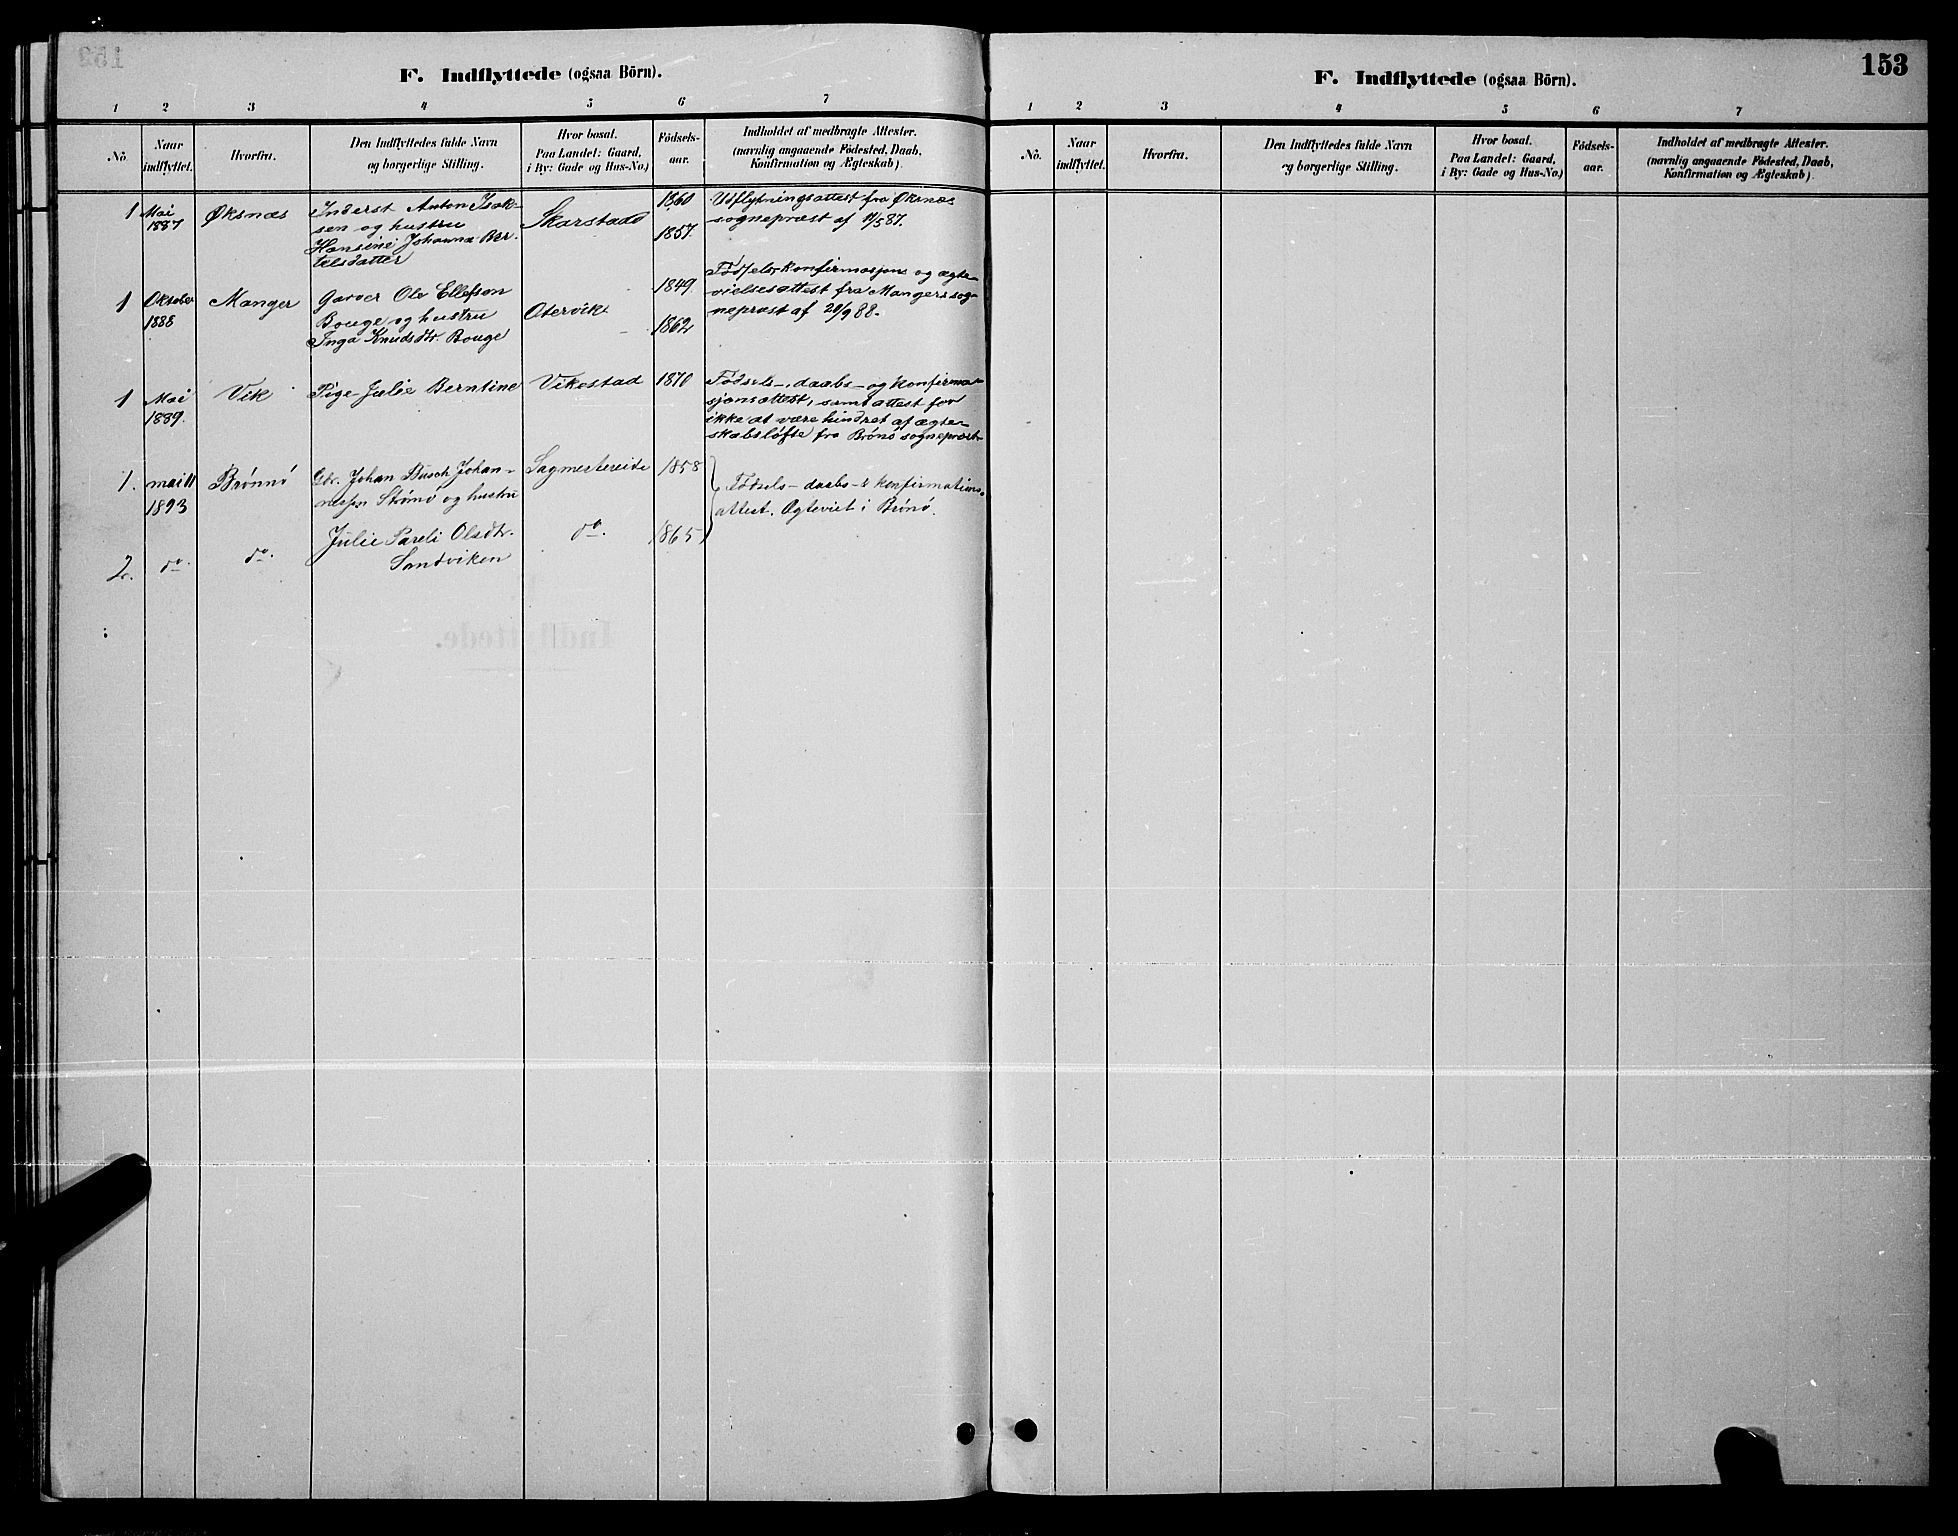 F. Indflyttede (ogsaa Börn).
1 2 3 4 5 6 7
No. Naar indflyttet. Hvorfra. Den Indflyttedes fulde Navn og borgerlige Stilling. Hvor bosat. Paa Landet: Gaard, i By: Gade og Hus-No.) Fødsels-aar. Indholdet af medbragte Attester. (navnlig angaaende Födested, Daab, Konfirmation og Ægteskab).
1 Mai 1887 Øksnæs Inderst Anton Isak- Skarstad 1860 Udflytningsattest fra Øksnæs
sen og hustru 1857. sognepræst af 11/5 87.
Hansine Johanna Ber-
telsdatter
1 Oktober 1888 Manger Garver Ole Ellefsen Otervik 1849 Fødsels, konfirmasjons og ægte-
Bouge og hustru 1862 vielsesattest fra Mangers sog-
Inga Knudsdtr. Bouge nepræst af 20/9 88.
1 Mai 1889. Vik Pige Julie Berntine Vikestad 1870 Fødsels-, daabs- og konfirma-
sjonsattest, samt attest for
ikke at være hindret af ægte-
skabsløfte fra Brønø sognepræst.
1. mai 11 1893 Brønnø Gbr. Johan Busch Johan- 1858 Fødsels- daabs- & konfirmations-
nessen Strømø og hustru attest. Ægteviet i Brønø.
2. do. do. Julie Pareli Olsdtr. do. 1865
Sandviken
153
F. Indflyttede (ogsaa Börn).
1 2 3 4 5 6 7
No. Naar indflyttet. Hvorfra. Den Indflyttedes fulde Navn og borgerlige Stilling. Hvor bosat. Paa Landet: Gaard, i By: Gade og Hus-No.) Fødsels-aar. Indholdet af medbragte Attester. (navnlig angaaende Födested, Daab, Konfirmation og Ægteskab).